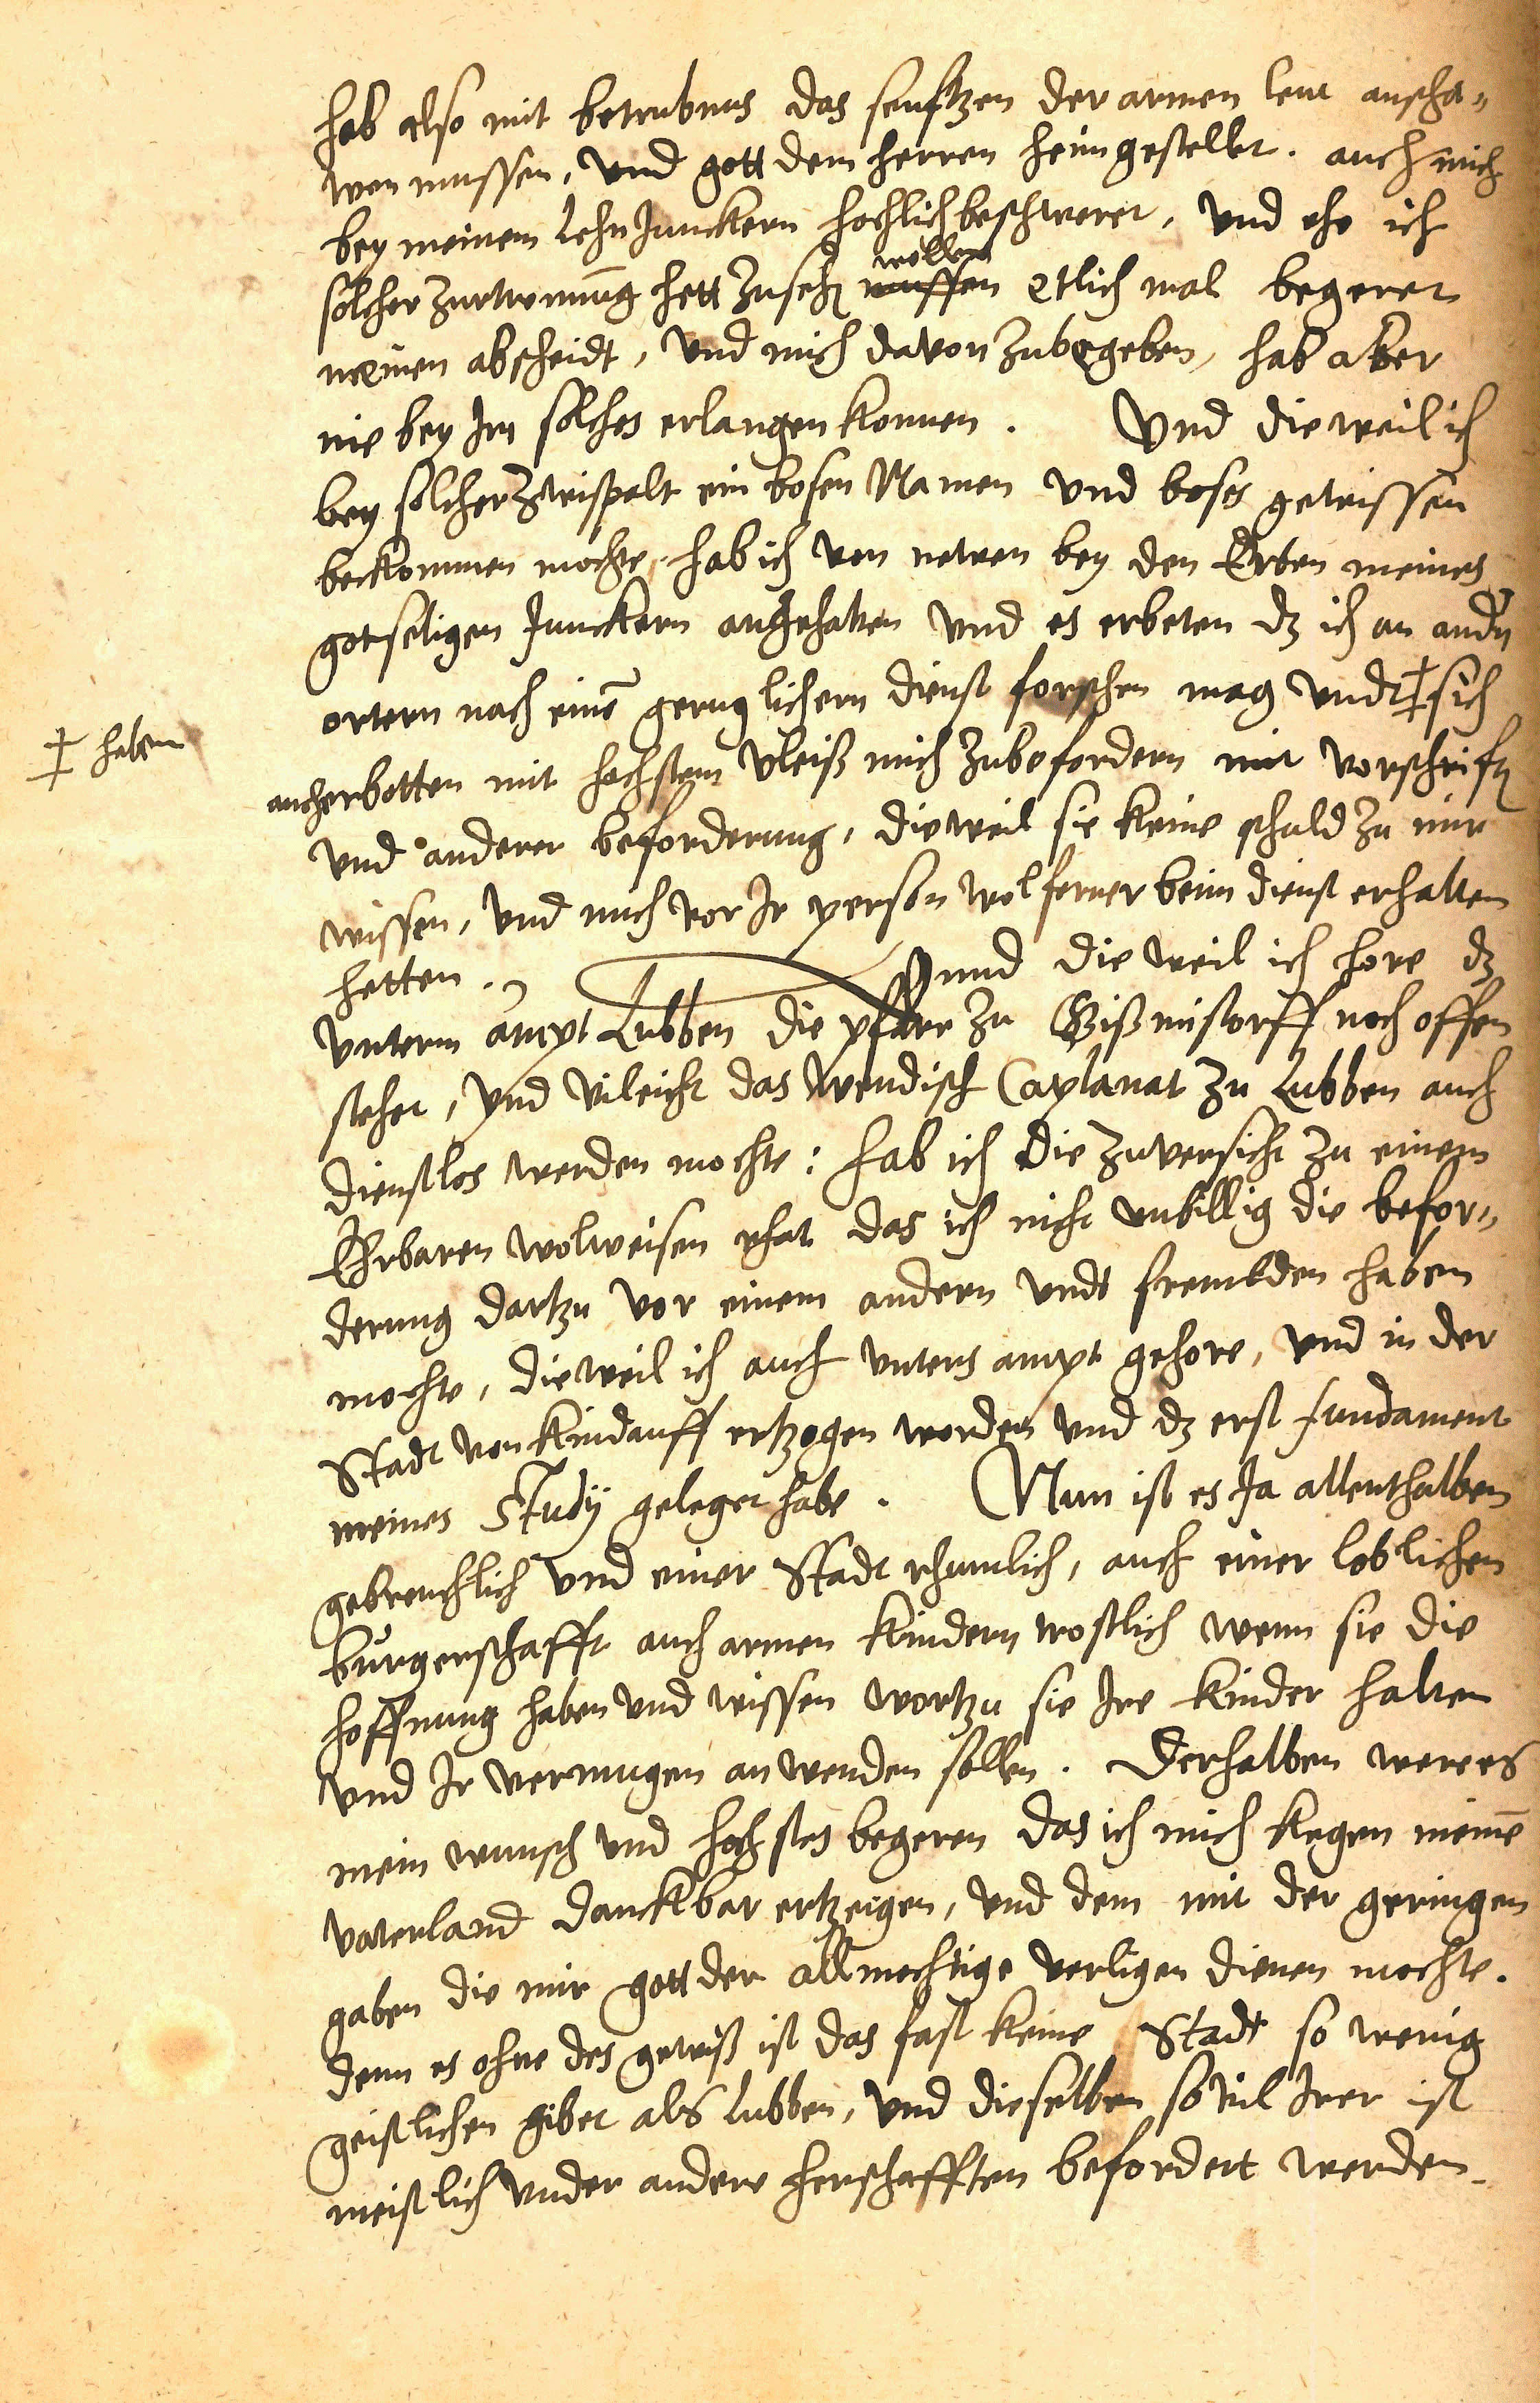 hab also mit betrubnus das seufftzen der armen leut anscha„
wen mussen, und gott dem herren heimgestellet. auch mich
bey meinem LehnJunckern hochlich beschweret, und ehe ich
wollen
solcher Zurtrennung hett zusehn mussen etlich mal begeret
meinen abscheidt, und mich davon zubegeben, hab aber
nie bey Im solches erlangen konnen. Und die weil ich
bey solcher Zwispalt ein bosen Namen und boses gewissen
beckommen mochte, hab ich von newen bey den Erben meines
gotseligen Junckern angehalten und es erbeten dz ich an andn
ortern nach eine geruglichern dienst forschen mag undt ‡ sich
‡ haben
auch erbotten mit hochstem vleiß mich zubefordern mit vorschrifft
und anderer beforderung, die weil sie keine schuld zu mir
wissen, und mich vor Ir person wol ferner beim dienst erhalten
hetten. Unnd die weil ich hore dz
unterm ampt Lubben die pfarr zu Gißmistorff noch offen
stehet, und vileicht das Wendisch Caplanat zu Lubben auch
dienstlos werden mochte: hab ich die zuversicht zu einem
Ehrbaren wolweisen rhat das ich nicht unbillig die befor„
derung dartzu vor einem andern undt frembden haben
mochte, die weil ich auch unters ampt gehore, und in der
Stadt von kindauff ertzogen worden und dz erst fundament
meines Studij geleget habe. Nun ist es Ja allenthalben
gebreuchlich und einer Stadt rhumlich, auch einer loblichen
burgerschafft auch armen kindern trostlich wenn sie die
hoffnung haben und wissen wortzu sie Ire kinder halten
und Ir vermugen anwenden sollen. Derhalben were es
mein wunsch und hochstes begeren das ich mich kegen meine
vaterland danckbar ertzeigen, und dem mit der geringen
gaben die mir gott der allmechtige verligen dienen mochte.
denn es ohne des gewiß ist das fast keine Stadt so wenig
geistlichen gibet als Lubben, und dieselben so vil Irer ist
meistlich under andere herschafften befordert werden